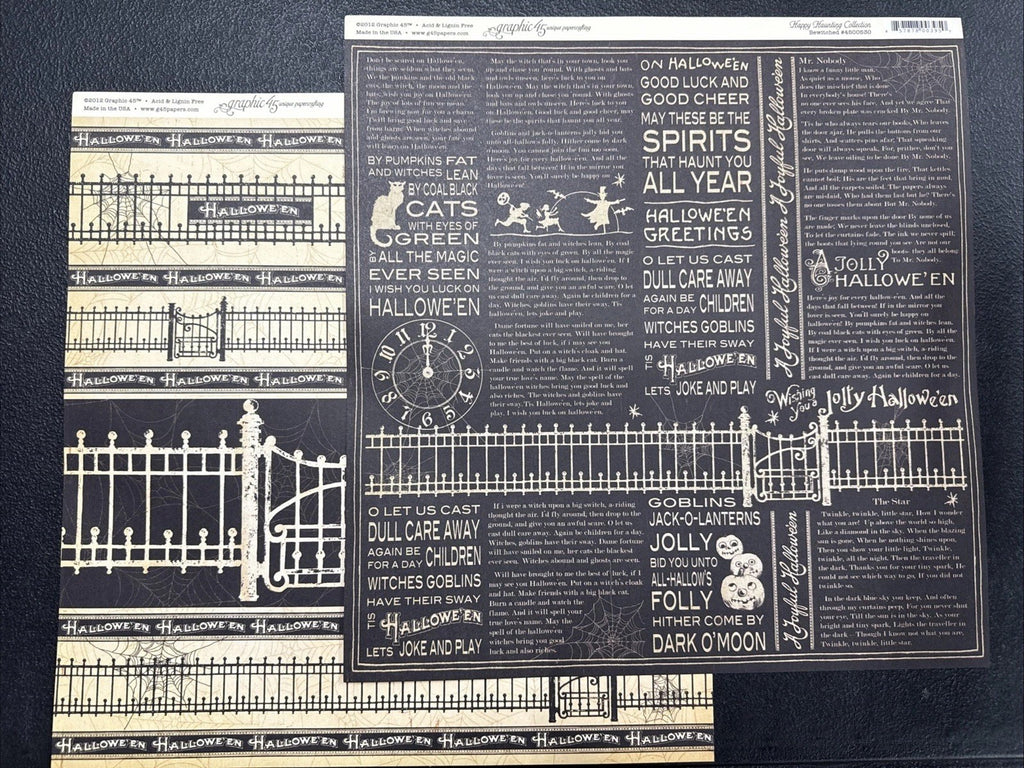 ©2012 Graphic 45™ • Acid & Lignin Free
Made in the USA • www.g45papers.com
graphic45 unique papercrafting
HALLOWE'EN HALLOWE'EN HALLOWE'EN
HALLOWE'EN
HALLOWE'EN HALLOWE'EN HALLOWE'EN
HALLOWE'EN HALLOWE'EN HALLOWE'EN
HALLOWE'EN HALLOWE'EN HALLOWE'EN
HALLOWE'EN HALLOWE'EN HALLOWE'EN HALLOWE'EN HALLOWE'EN HALLOWE'EN HALLOWE'EN
©2012 Graphic 45™ • Acid & Lignin Free
Made in the USA • www.g45papers.com
graphic45 unique papercrafting
Happy Haunting Collection
Bewitched #4500530
Don't be scared on Hallowe'en,
things are seldom what they seem.
We the punkins and the old black
cats, the witch, the moon and the
BY PUMPKINS FAT
AND WITCHES LEAN
BY COAL BLACK
CATS
WITH EYES OF
GREEN
BY ALL THE MAGIC
EVER SEEN
I WISH YOU LUCK ON
HALLOWE'EN
12
1
2
3
4
5
6
7
8
9
10
11
O LET US CAST
DULL CARE AWAY
AGAIN BE
FOR A DAY CHILDREN
WITCHES GOBLINS
HAVE THEIR SWAY
TIS HALLOWE'EN
LETS JOKE AND PLAY
May the witch that's in your town, look you
up and chase you 'round. With ghosts and bats
and owls unseen, here's luck to you on
Hallowe'en. May the witch that's in your town,
look you up and chase you 'round. With ghosts
and bats and owls unseen. Here's luck to you
on Hallowe'en. Good luck and good cheer, may
these be the spirits that haunt you all year.
Goblins and jack-o-lanterns jolly bid you
unto all-hallows folly. Hither come by dark
o'moon. You cannot join the fun too soon.
Here's joy for every hallow-e'en. And all the
days that fall between! If in the mirror you
lover is seen. You'll surely be happy on
Hallowe'en!
By pumpkins fat and witches lean. By coal
black cats with eyes of green. By all the magic
ever seen. I wish you luck on Hallowe'en. If I
were a witch upon a big switch, a-riding
thought the air. I'd fly around, then drop to the
ground, and give you an awful scare. O let
us cast dull care away. Again be children for a
day. Witches, goblins have their sway. Tis
hallowe'en, lets joke and play.
Dame fortune will have smiled on me, her
cats the blackest ever seen. Will have brought
to me the best of luck, if I may see you
Hallowe'en. Put on a witch's cloak and hat.
Make friends with a big black cat. Burn a
candle and watch the flame. And it will spell
your true love's name. May the spell of the
hallowe'en witches bring you good luck and
also riches. The witches and goblins have
their sway. Tis Hallowe'en, lets joke and
play. I wish you luck on hallowe'en.
If i were a witch upon a big switch, a-riding
thought the air. I'd fly around, then drop to the
ground, and give you an awful scare. O let us
cast dull care away. Again be children for a day.
Witches, goblins have their sway. Dame fortune
will have smiled on me, her cats the blackest
ever seen. Witches abound and ghosts are seen.
Will have brought to me the best of luck, if I
may see you Hallowe'en. Put on a witch's cloak
and hat. Make friends with a big black cat.
Burn a candle and watch the
flame. And it will spell your
true love's name. May the
spell of the hallowe'en
witches bring you good
luck and also riches.
ON HALLOWE'EN
GOOD LUCK AND
GOOD CHEER
MAY THESE BE THE
SPIRITS
THAT HAUNT YOU
ALL YEAR
HALLOWE'EN
GREETINGS
O LET US CAST
DULL CARE AWAY
AGAIN BE
FOR A DAY CHILDREN
WITCHES GOBLINS
HAVE THEIR SWAY
TIS HALLOWE'EN
LETS JOKE AND PLAY
GOBLINS AND
JACK-O-LANTERNS
JOLLY
BID YOU UNTO
ALL-HALLOW'S
FOLLY
HITHER COME BY
DARK O'MOON
A Joyful Halloween A Joyful Halloween
A Joyful Halloween
Mr. Nobody
I know a funny little man,
As quiet as a mouse, Who
does the mischief that is done
In everybody's house! There's
no one ever sees his face, And yet we agree That
every broken plate was cracked By Mr. Nobody.
'Tis he who always tears our books, Who leaves
the door ajar, He pulls the buttons from our
shirts, And scatters pins afar, That squeaking
door will always squeak, For, prithee, don't you
see, We leave oiling to be done By Mr. Nobody.
He puts damp wood upon the fire, That kettles
cannot boil; His are the feet that bring in mud,
And all the carpets soiled. The papers always
are mislaid, Who had them last but he? There's
no one tosses them about But Mr. Nobody.
The finger marks upon the door By none of us
are made; We never leave the blinds unclosed,
To let the curtains fade. The ink we never spill;
the boots that lying round you see Are not our
boots: they all belong
To Mr. Nobody.
A JOLLY
HALLOWE'EN
Here's joy for every hallow-e'en. And all the
days that fall between! If in the mirror you
lover is seen. You'll surely be happy on
hallowe'en! By pumpkins fat and witches lean.
By coal black cats with eyes of green. By all the
magic ever seen. I wish you luck on hallowe'en.
If I were a witch upon a big switch, a-riding
thought the air. I'd fly around, then drop to the
ground, and give you an awful scare. O let us
cast dull care away. Again be children for a day.
Wishing you a Jolly Hallowe'en
The Star
Twinkle, twinkle, little star, How I wonder
what you are! Up above the world so high,
Like a diamond in the sky. When the blazing
sun is gone, When he nothing shines upon,
Then you show your little light, Twinkle,
twinkle, all the night. Then the traveller in
the dark, Thanks you for your tiny spark, He
could not see which way to go, If you did not
twinkle so.
In the dark blue sky you keep, And often
through my curtains peep, For you never shut
your eye, Till the sun is in the sky. As your
bright and tiny spark, Lights the traveller in
the dark - Though I know not what you are,
Twinkle, twinkle, little star.